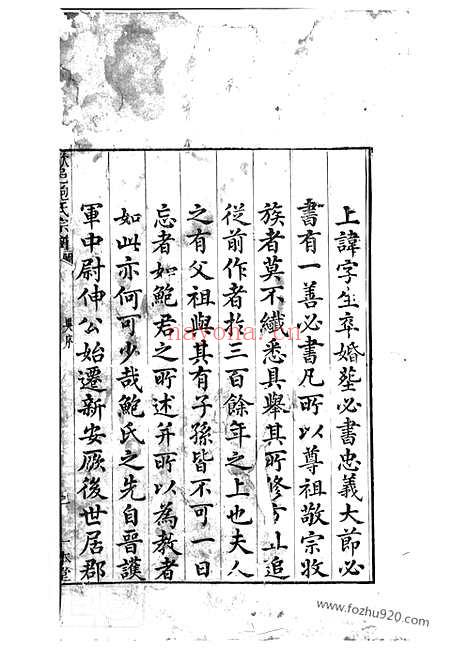 上諱字生卒婚塟必書忠義大節必
書有一善必書凡所以尊祖敬宗收
族者莫不纖悉具舉其所修方以追
從前作者於三百餘年之上也夫人
之有父祖與其有子孫皆不可一日
忘者如鮑君之所述并所以為教者
如此亦何可少哉鮑氏之先自晉護
軍中尉伸公始遷新安厥後世居郡
鮑氏宗譜
序
堂
nayona.cn
www.fozhu920.com